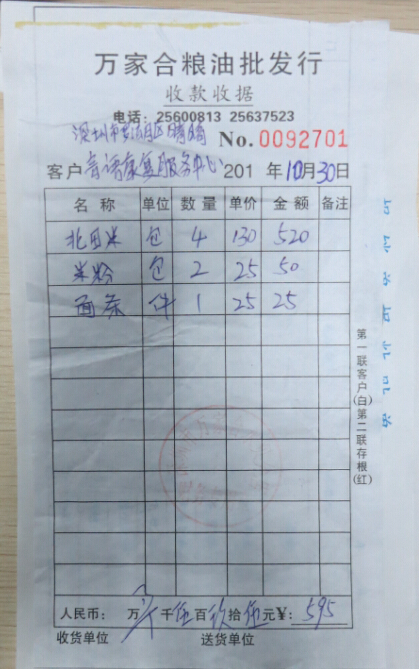 万家合粮油批发行
收款收据
电话：25600813 25637523
深圳市罗湖区晴晴
No.0092701
客户 言语康复服务中心 201 年10月30日
名称 单位 数量 单价 金额 备注
北田米 包 4 130 520
米粉 包 2 25 50
面条 件 1 25 25
第一联客户(白)第二联存根(红)
人民币： 万 千伍百玖拾伍元¥：595
收货单位 送货单位